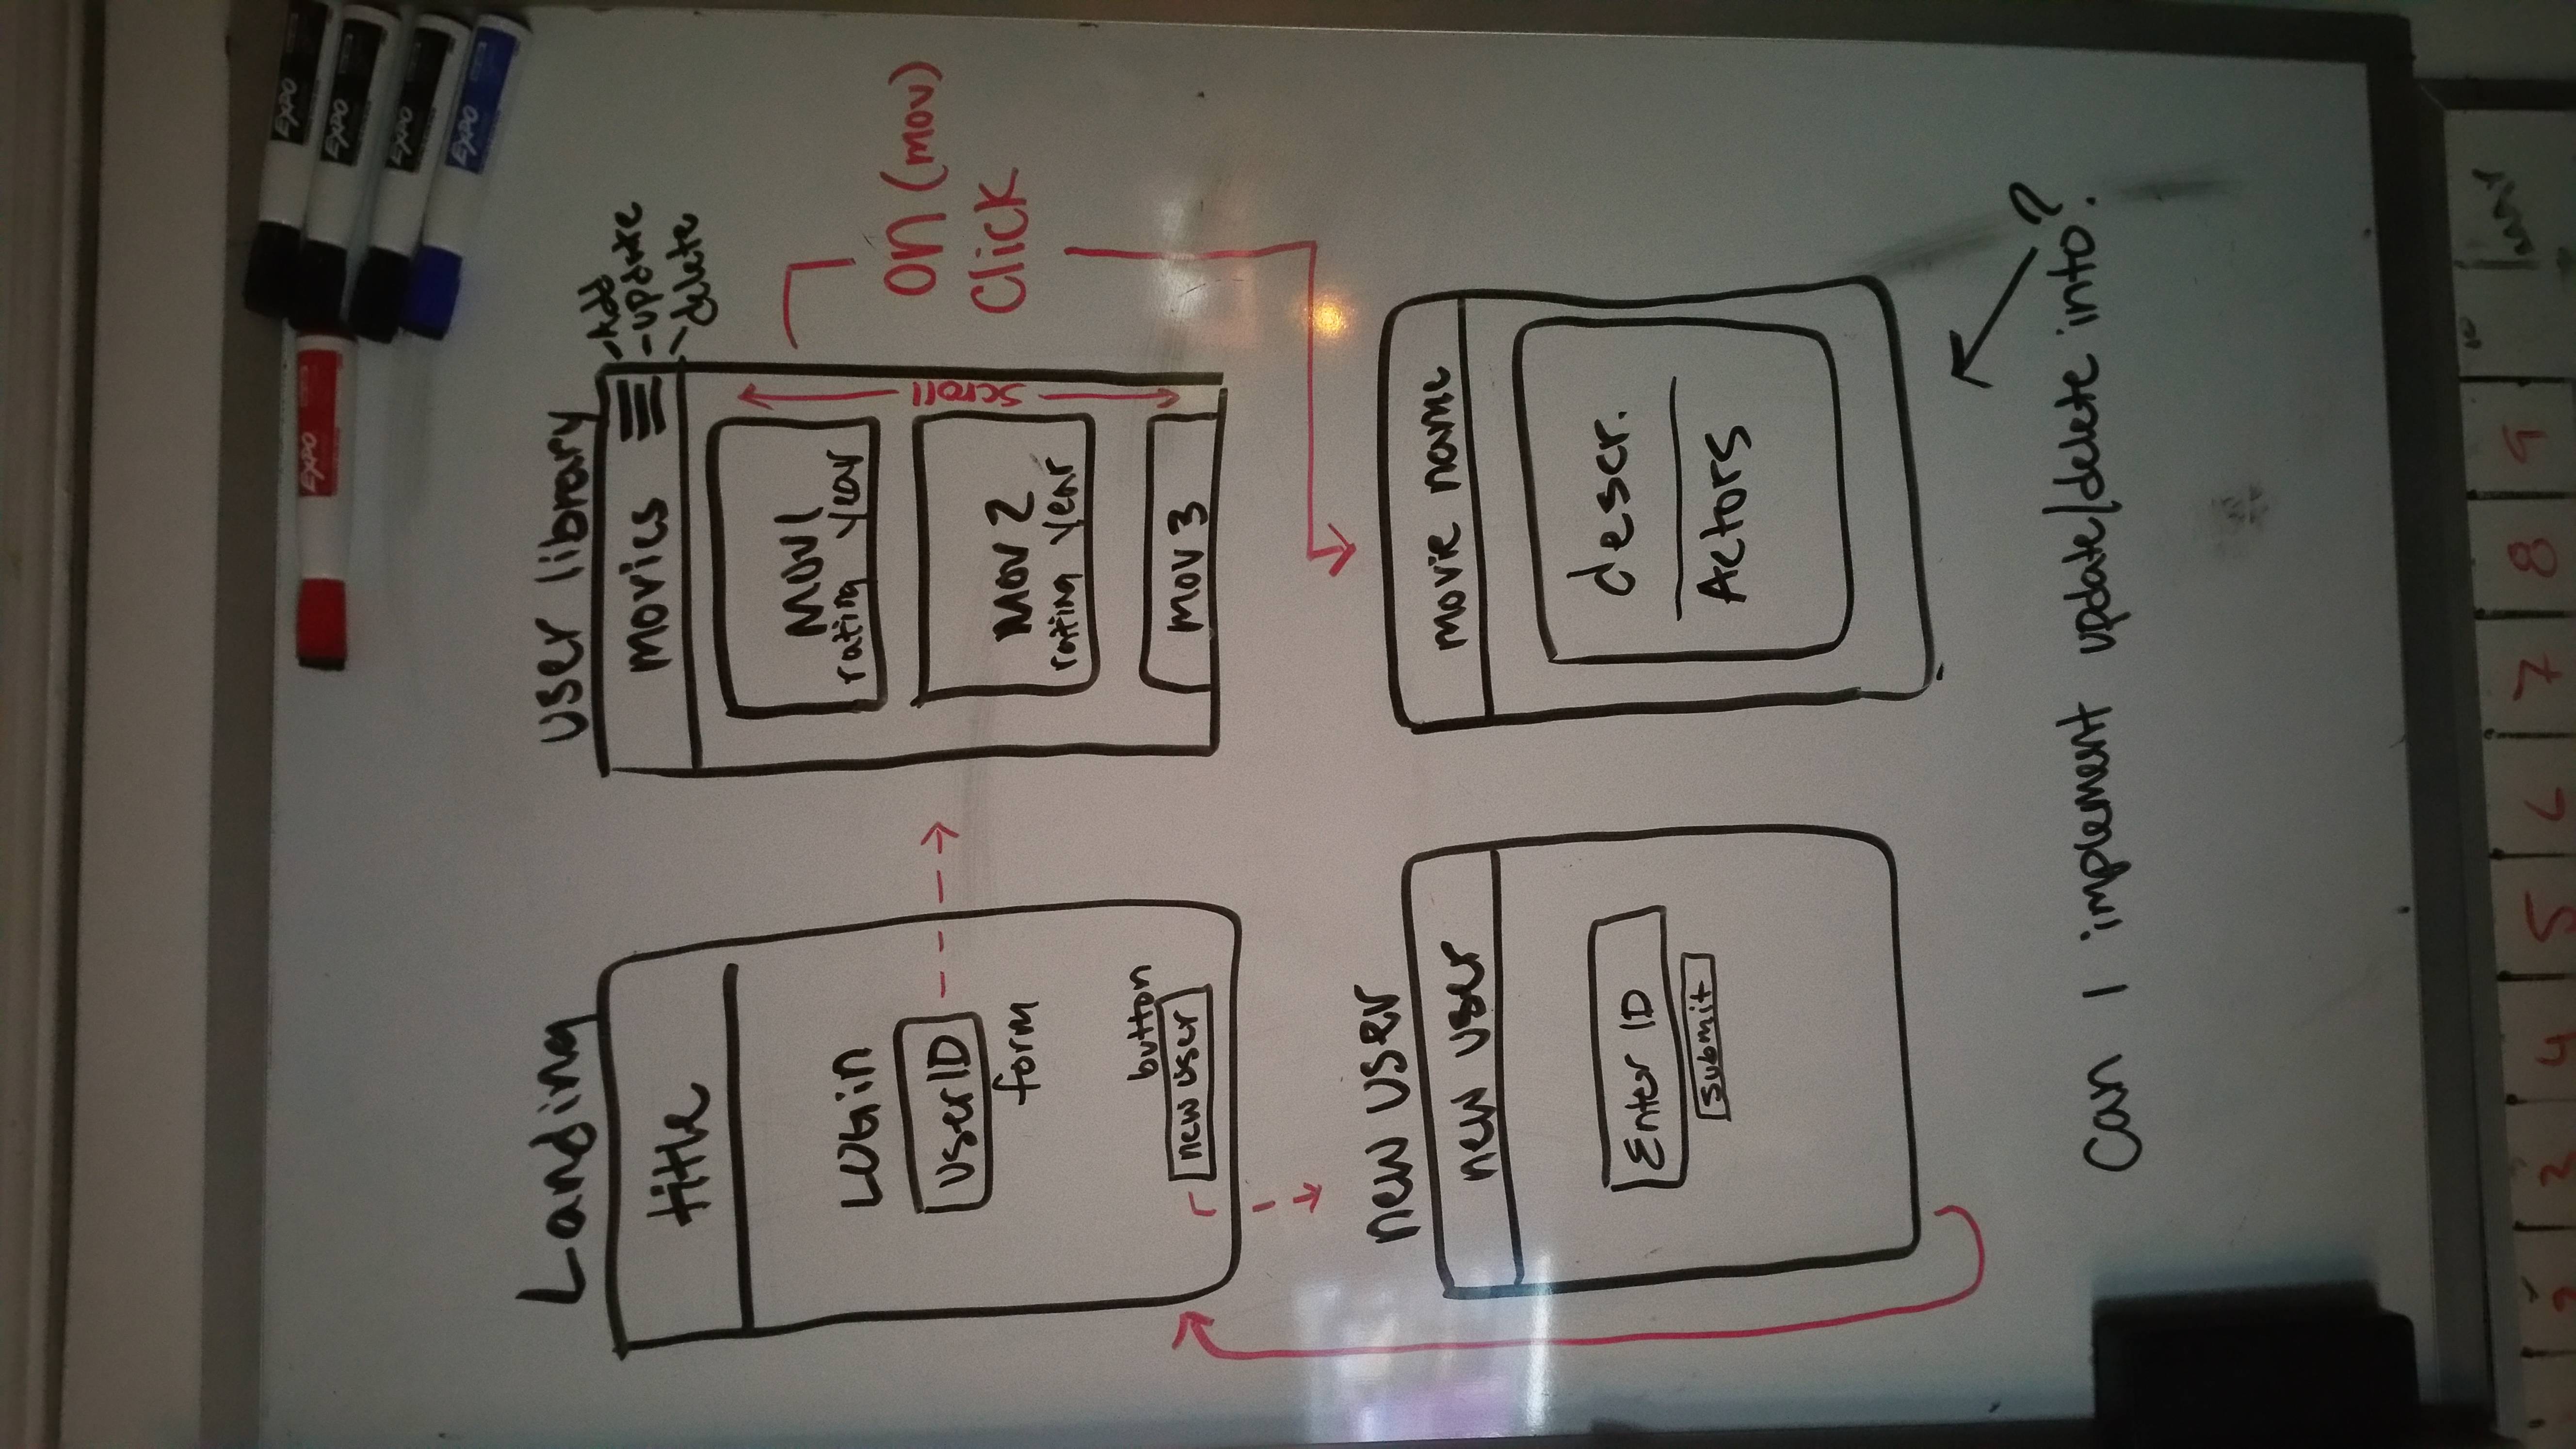 EXPO
EXPO
EXPO
EXPO
EXPO
Landing
title
LOGin
UserID
form
button
new user
user library
movies
-Add
-update
-delete
MOV1
rating year
MOV 2
rating year
MOV 3
scroll
on (mov)
Click
new user
new user
Enter ID
Submit
movie name
descr.
Actors
Can I implement update/delete into?
2 3 4 5 6 7 8 9 10